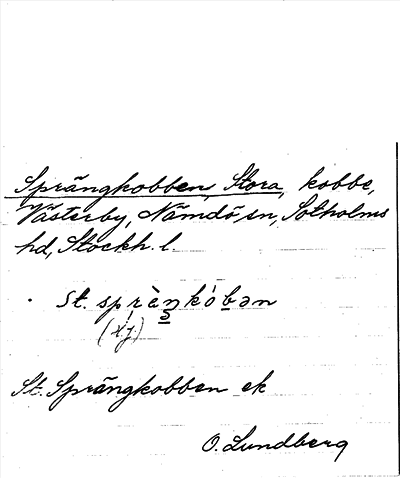 Sprängkobben, Stora, kobbe,
Västerby, Nämdö sn, Sotholms
hd, Stockh. l.
St. sprὰŋkόbən
St. Sprängkobben ek
O. Lundberg